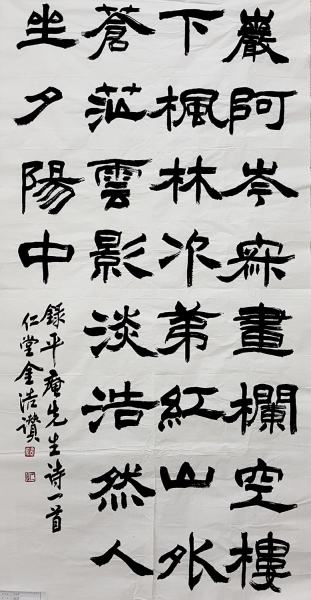 巖阿岑寂畫欄空樓
下楓林次第紅山外
蒼茫雲影淡浩然人
坐夕陽中
錄平庵先生诗一首
仁堂金浩讚